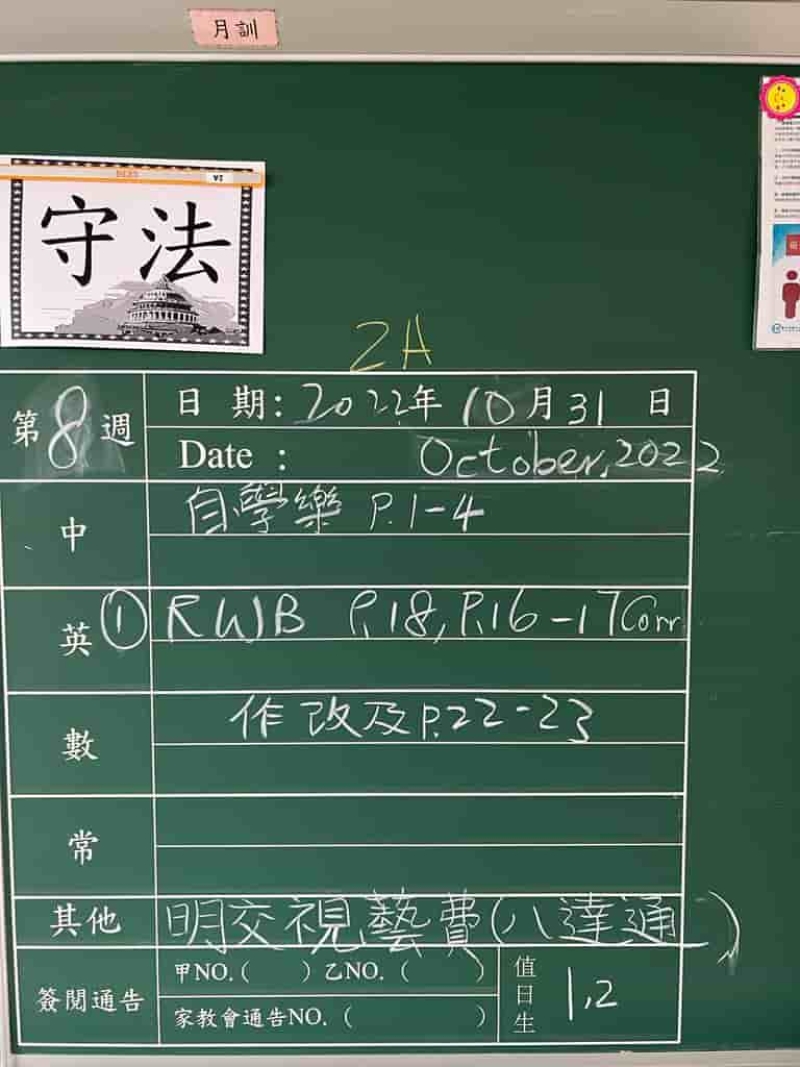 月訓
守法
2A
第8週
日 期：2022年10月31日
Date : October, 2022
中 自學樂 P.1-4
英 ① RWB P.18, P.16-17 Corr
數 作改及P.22-23
常
其他 明交視藝費(八達通)
簽閱通告 甲NO.( ) 乙NO.( )
家教會通告NO.( )
值日生 1,2